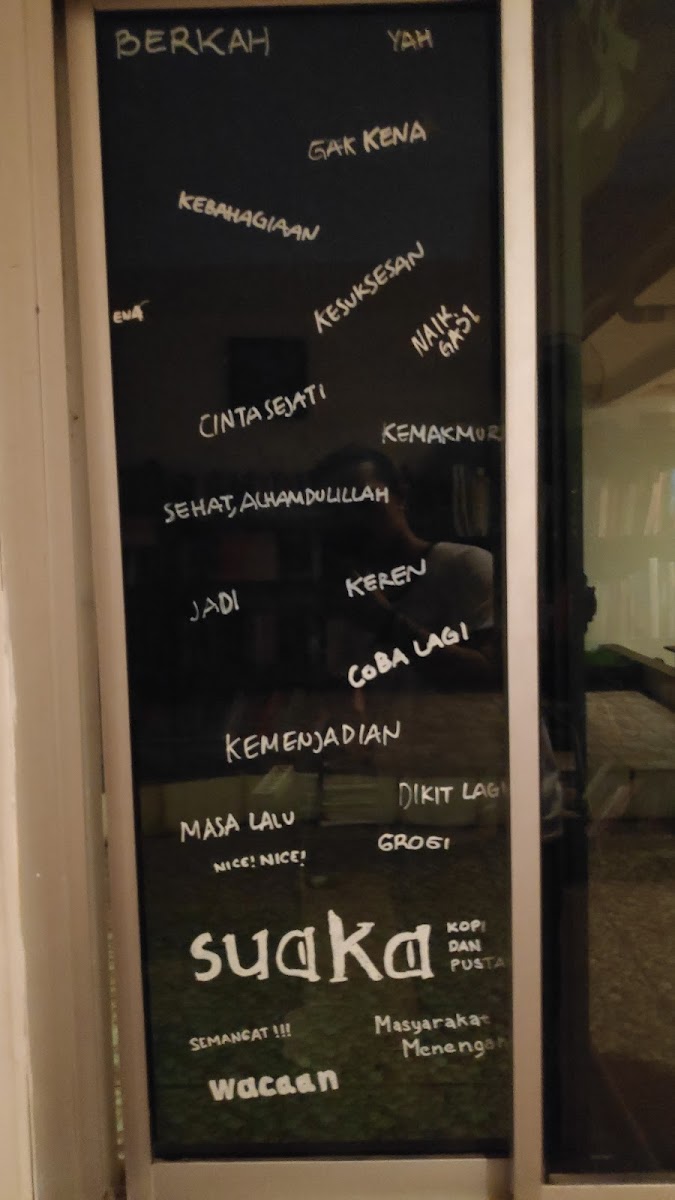 BERKAH
YAH
GAK KENA
KEBAHAGIAAN
KESUKSESAN
ENA
NAIK
GAJI
CINTA SEJATI
KEMAKMUR
SEHAT, ALHAMDULILLAH
KEREN
JADI
COBA LAGI
KEMENJADIAN
DIKIT LAGI
MASA LALU
GROGI
NICE! NICE!
suaka
KOPI
DAN
PUSTA
SEMANGAT!!!
Masyarakat
Menengah
wacaan